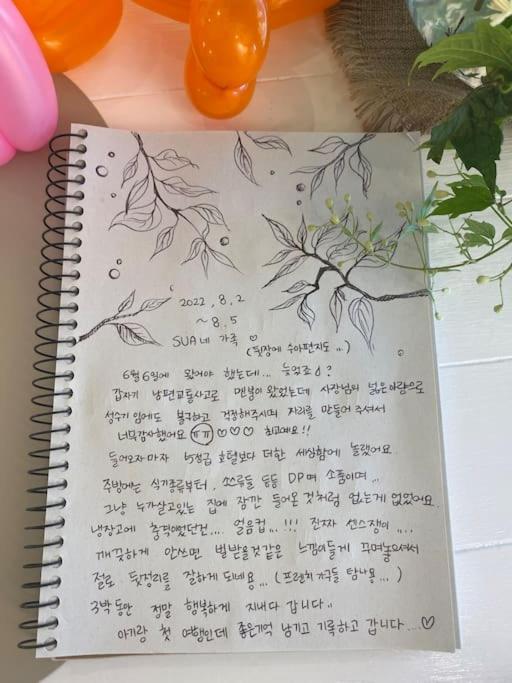 2022.8.2
~8.5
SUA네 가족 ♡
(뒷장에 수아편지도...)
6월 6일에 왔어야 했는데... 늦었죠?
갑자기 남편교통사고로 멘붕이 왔었는데 사장님의 넓은아량으로
성수기 임에도 불구하고 걱정해주시며 자리를 만들어 주셔서
너무감사했어요 ㅠㅠ ♡♡♡ 최고예요!!
들어오자마자 5성급 호텔보다 더한 세상함에 놀랬어요.
주방에는 식기종류부터, 소스류들 등등 DP며 소품이며...
그냥 누가살고있는 집에 잠깐 들어온 것처럼 없는게 없었어요.
냉장고에 충격이었던건... 얼음컵...!!! 진짜 센스쟁이....
깨끗하게 안쓰면 벌받을것같은 느낌이들게 꾸며놓으셔서
절로 뒷정리를 잘하게 되네용... (프렌치 가구들 탐나용...)
3박동안 정말 행복하게 지내다 갑니다..
아기랑 첫 여행인데 좋은기억 남기고 기록하고 갑니다...♡